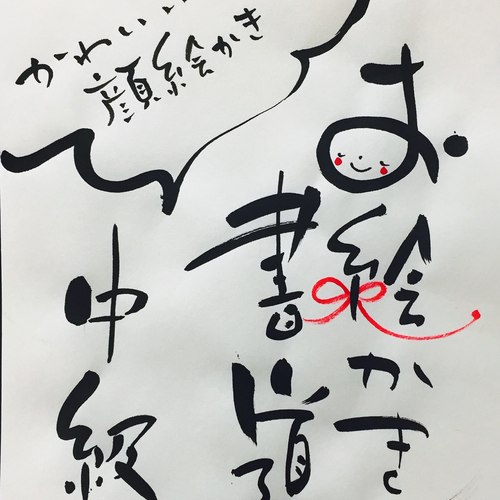 お絵かき
書道
中級
かわいい
顔絵かき